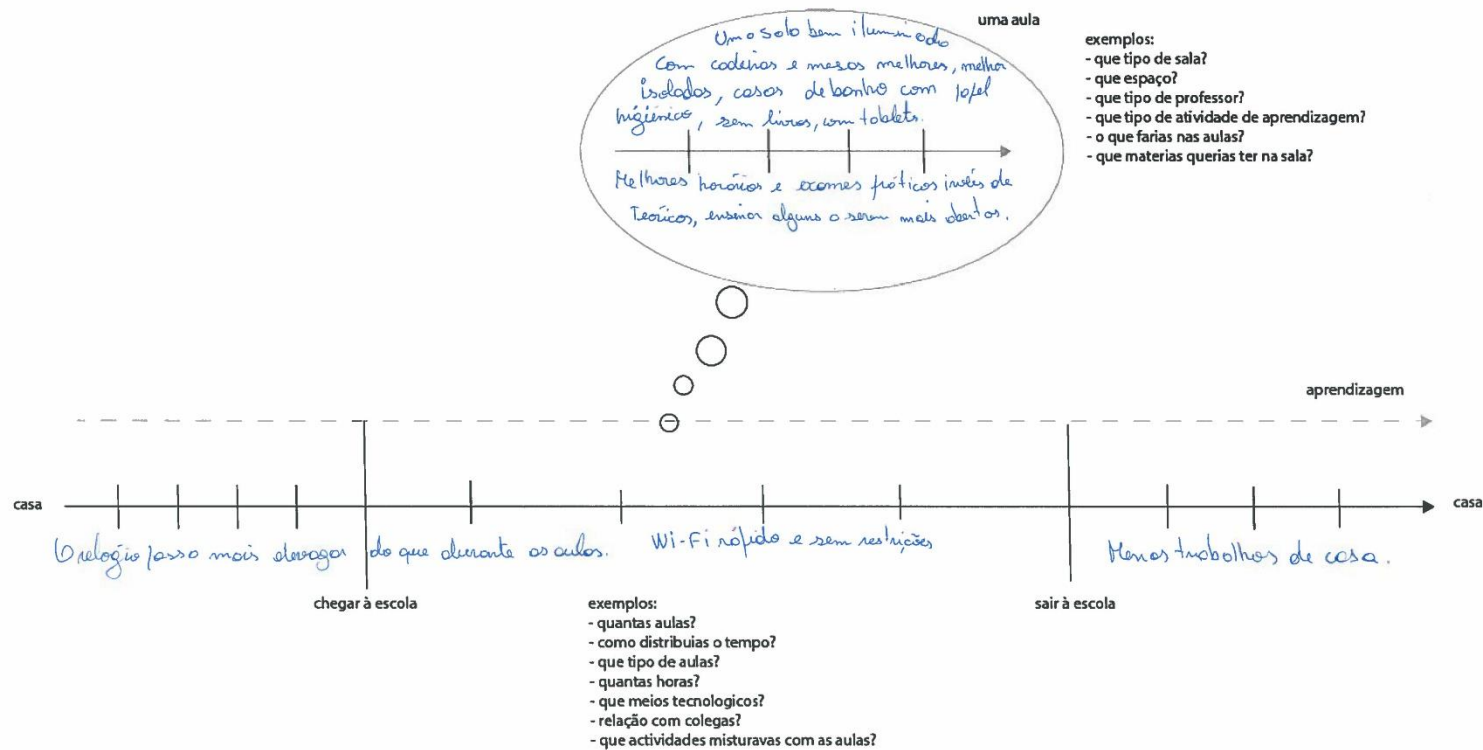 uma aula
Uma sala bem iluminada
Com cadeiras e mesas melhores, melhor
isoladas, casas de banho com papel
higiénico, sem livros, com tablets.
Melhores horários e exames práticos invés de
Teóricos, ensinar alguns a serem mais abertos.
exemplos:
- que tipo de sala?
- que espaço?
- que tipo de professor?
- que tipo de atividade de aprendizagem?
- o que farias nas aulas?
- que materias querias ter na sala?
aprendizagem
casa
casa
O relogio passa mais devagar do que durante as aulas.
Wi-Fi rápido e sem restrições
Menos trabalhos de casa.
chegar à escola
sair à escola
exemplos:
- quantas aulas?
- como distribuias o tempo?
- que tipo de aulas?
- quantas horas?
- que meios tecnologicos?
- relação com colegas?
- que actividades misturavas com as aulas?